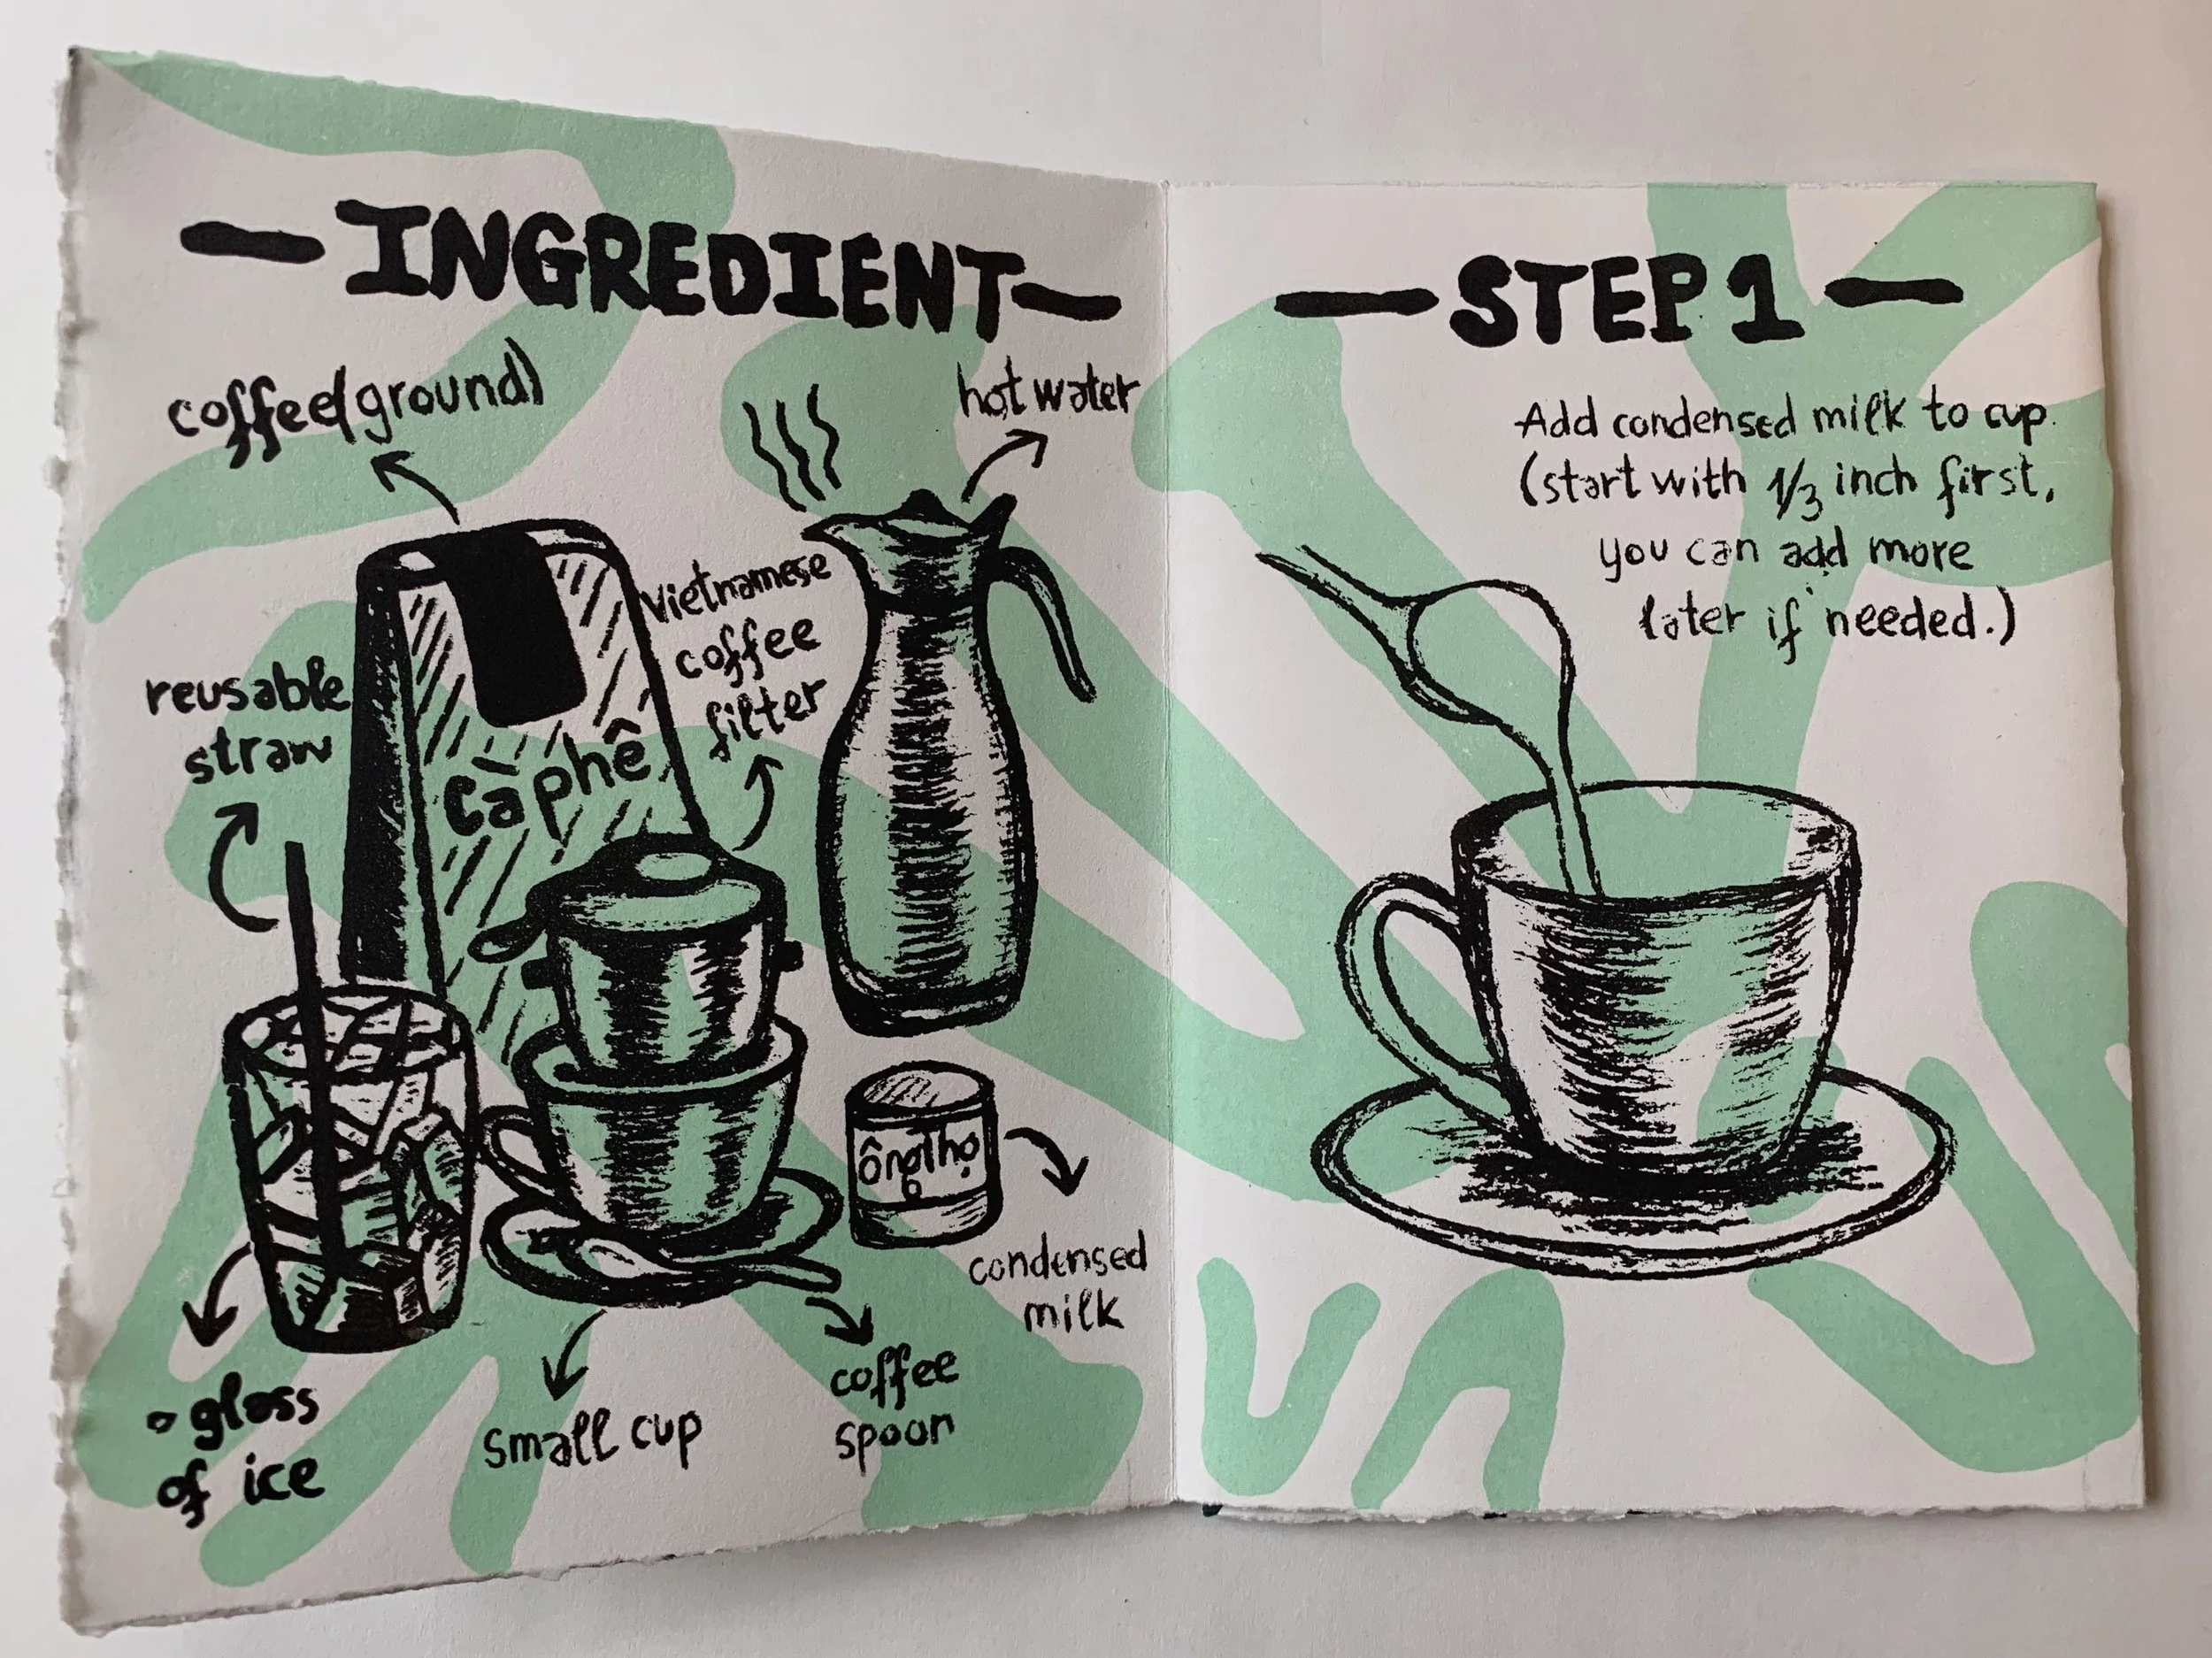 — INGREDIENT —
coffee (ground)
hot water
Vietnamese
coffee
filter
reusable
straw
Cà phê
ông Thọ
condensed
milk
coffee
spoon
small cup
a glass
of ice
— STEP 1 —
Add condensed milk to cup.
(start with 1/3 inch first,
you can add more
later if needed.)